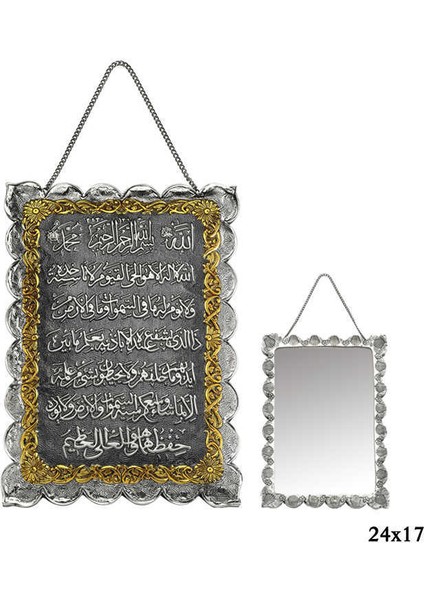 الله بسم الله الرحمن الرحيم محمد
الله لا اله الا هو الحي القيوم لا تأخذه سنة
ولا نوم له ما في السموات وما في الارض
من ذا الذي يشفع عنده الا باذنه يعلم ما بين
ايديهم وما خلفهم ولا يحيطون بشيء من علمه
الا بما شاء وسع كرسيه السموات والارض ولا يؤده
حفظهما وهو العلي العظيم
24x17